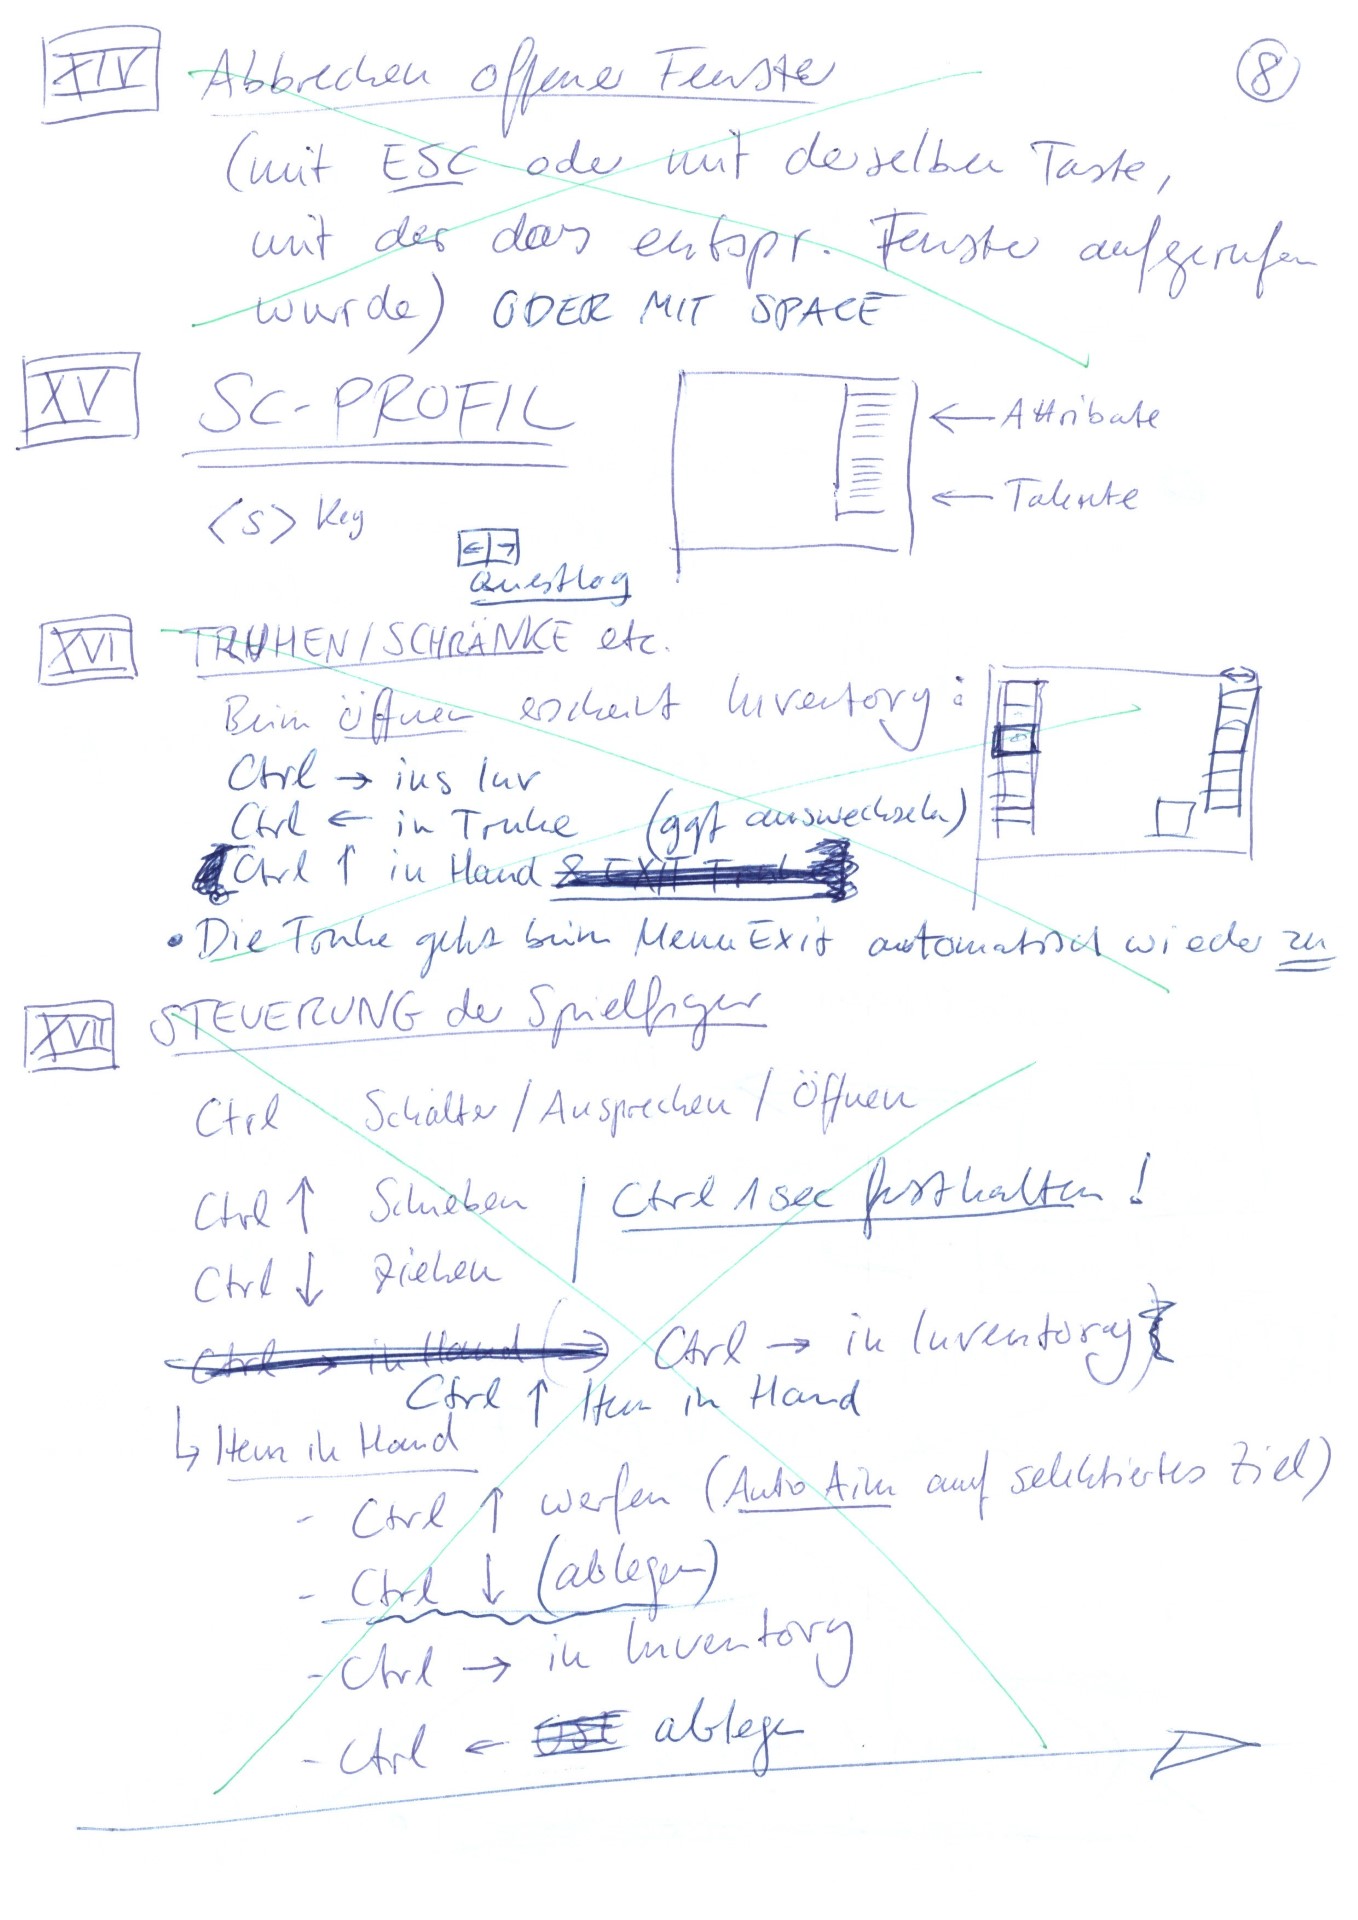 XIV Abbrechen offener Fenster
8
(mit ESC oder mit derselben Taste,
mit der das entspr. Fenster aufgerufen
wurde) ODER MIT SPACE
XV SC-PROFIL
← Attribute
← Talente
<S> Key
←|→
Questlog
XVI TRUHEN/SCHRÄNKE etc.
Beim öffnen erscheint Inventory:
Ctrl → ins Inv
Ctrl ← in Truhe (ggf auswechseln)
Ctrl ↑ in Hand & EXIT Truhe
• Die Truhe geht beim Menu Exit automatisch wieder zu
XVII STEUERUNG der Spielfigur
Ctrl Schalter / Ansprechen / Öffnen
Ctrl ↑ Schieben | Ctrl 1 sec festhalten!
Ctrl ↓ Ziehen
Ctrl → in Hand (⇒ Ctrl → in Inventory)
Ctrl ↑ Item in Hand
↳ Item in Hand
- Ctrl ↑ werfen (Auto Aim auf selektiertes Ziel)
- Ctrl ↓ (ablegen)
- Ctrl → in Inventory
- Ctrl ← ablegen